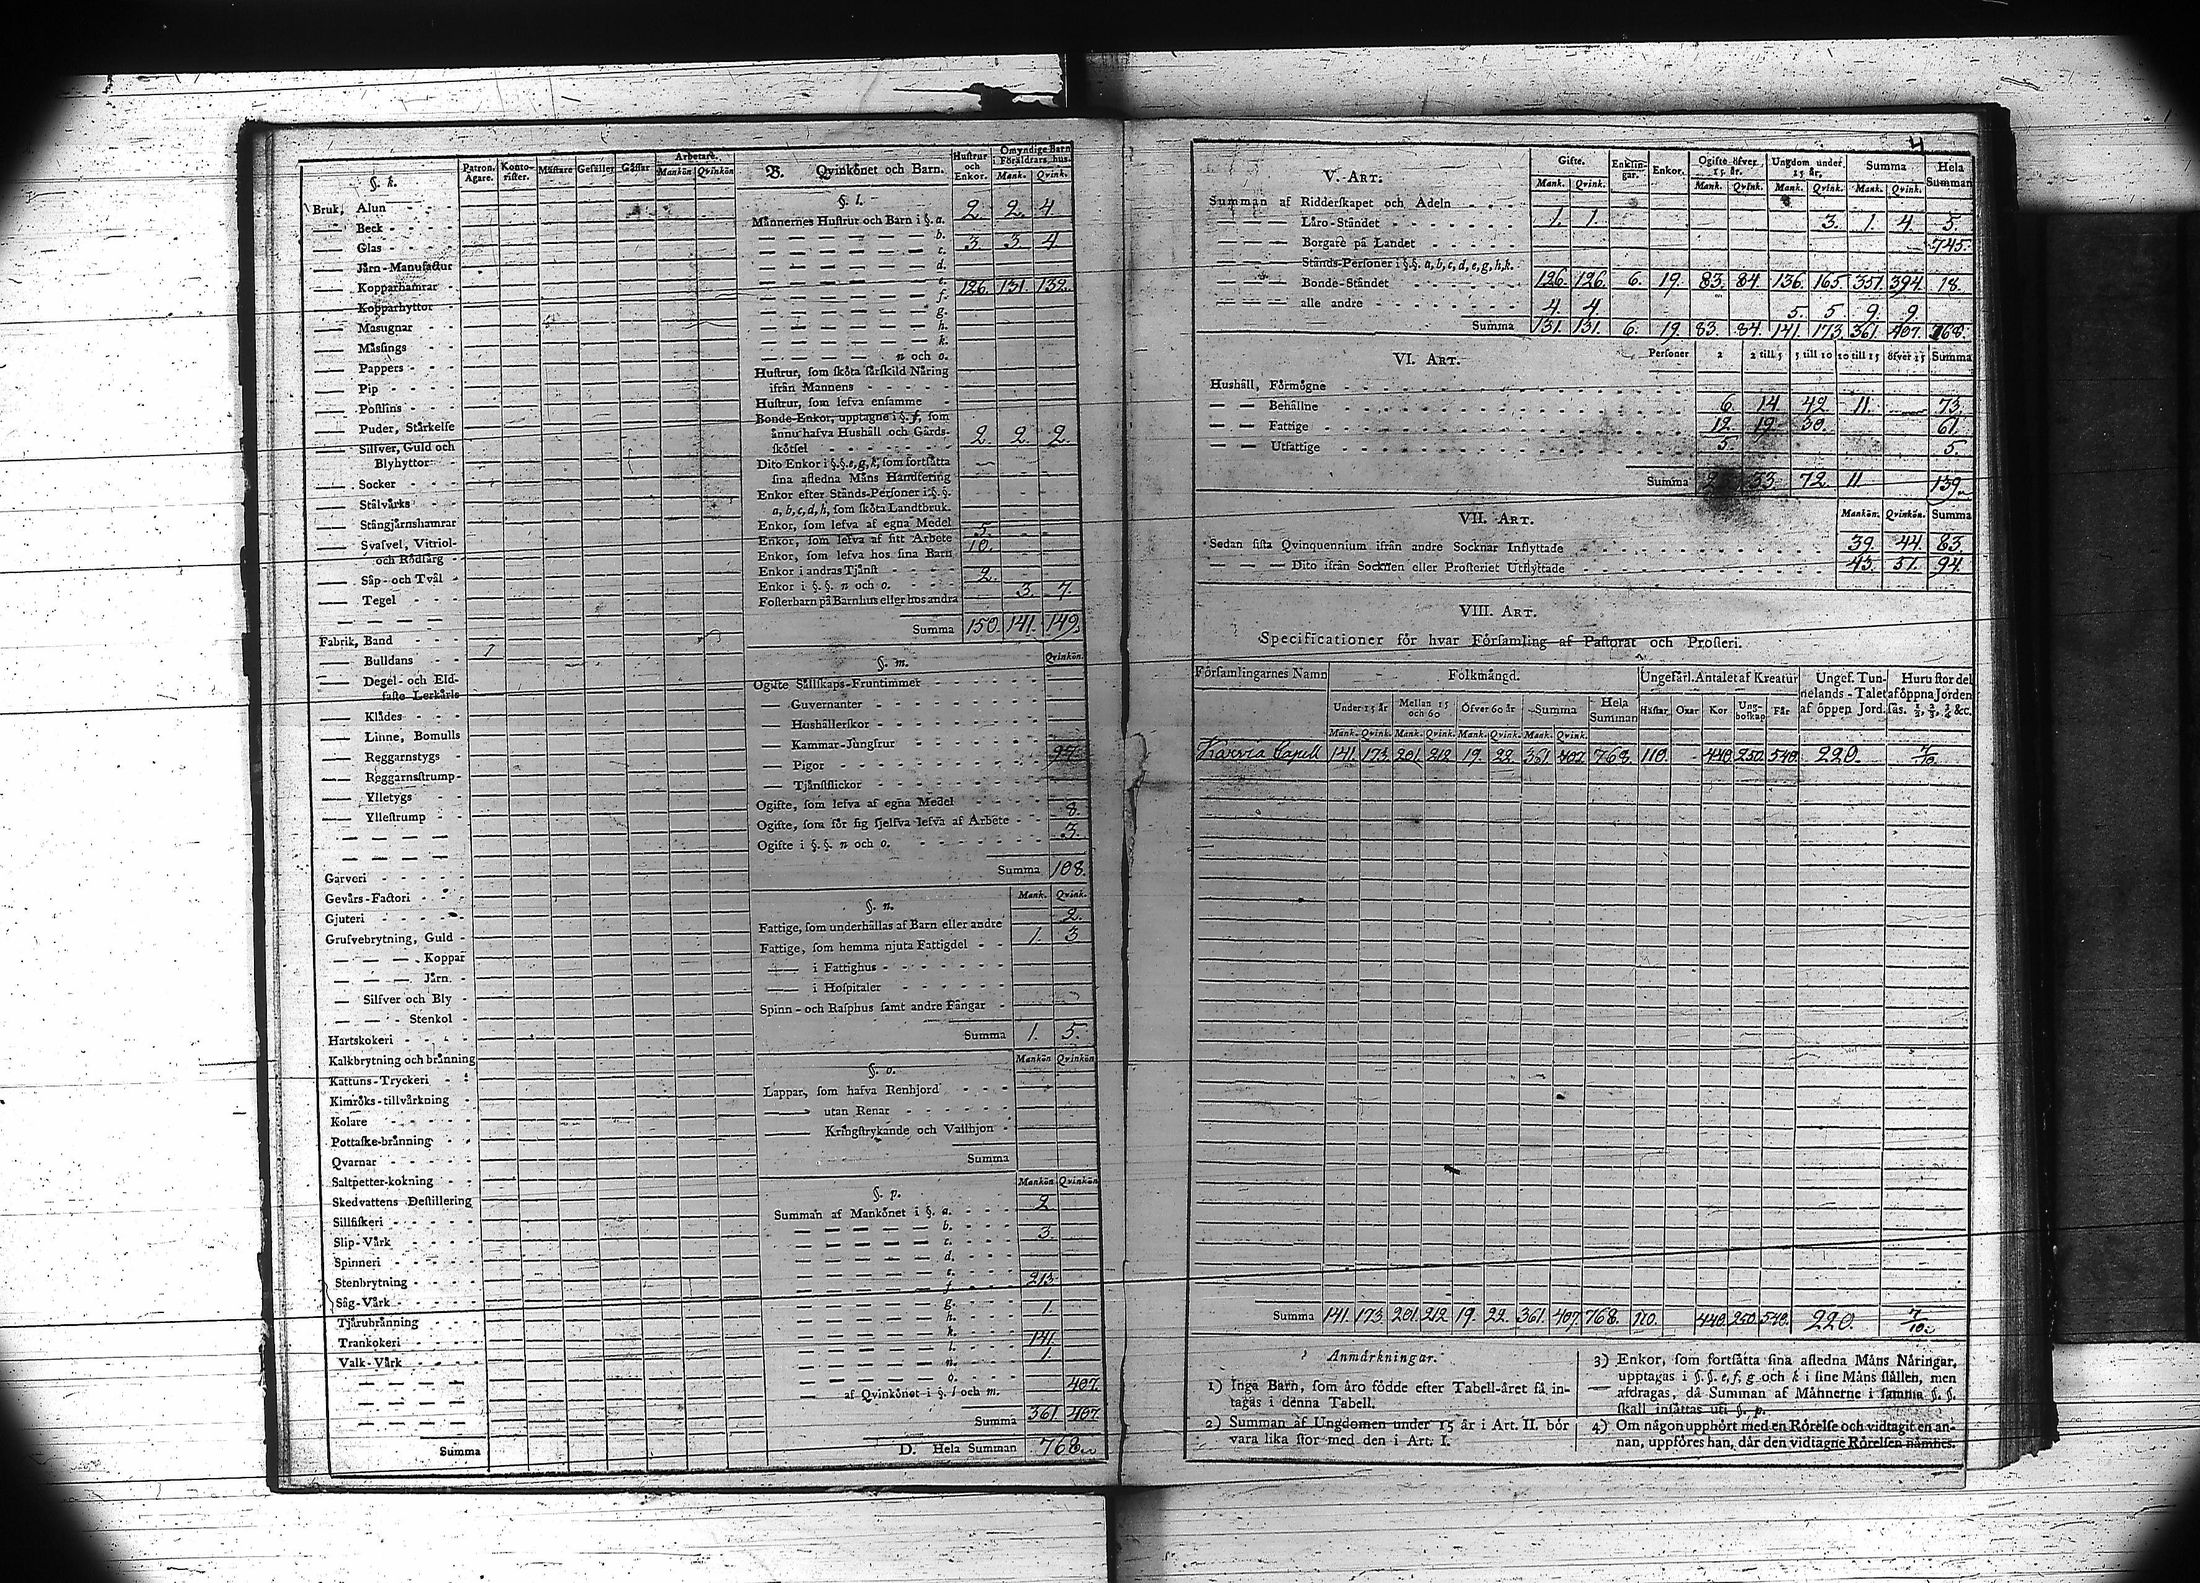 §. k. Patron. Ägare. Kontorister. Mästare Gesäller. Gåssar Arbetare. Mankön Qvinkön
Bruk, Alun
— Beck
— Glas
— Järn-Manufactur
— Kopparhamrar
— Kopparhyttor
— Masugnar
— Mässings
— Pappers
— Pip
— Postlins
— Puder, Stärkelse
— Silfver, Guld och
Blyhyttor
— Socker
— Stålvärks
— Stångjärnshamrar
— Svafvel, Vitriol-
och Rödfärg
— Såp- och Tvål
— Tegel
Fabrik, Band
— Bulldans
— Degel- och Eld-
faste Lerkärls
— Klädes
— Linne, Bomulls
— Reggarnstygs
— Reggarnsstrump-
— Ylletygs
— Yllestrump
Garveri
Gevärs-Factori
Gjuteri
Grufvebrytning, Guld
— — — Koppar
— — — Järn
— Silfver och Bly
— — Stenkol
Hartskokeri
Kalkbrytning och bränning
Kattuns-Tryckeri
Kimröks-tillvärkning
Kolare
Pottaske-bränning
Qvarnar
Saltpetter-kokning
Skedvattens Destillering
Sillfiskeri
Slip-Värk
Spinneri
Stenbrytning
Såg-Värk
Tjärubränning
Trankokeri
Valk-Värk
Summa
B. Qvinkönet och Barn. Hustrur och Enkor. Omyndige Barn i Föräldrars hus. Mank. Qvink.
§. l.
Männernes Hustrur och Barn i §. a. 2. 2. 4.
b.
c. 3. 3. 4
d.
e.
f. 126. 131. 132.
g.
h.
k.
n och o.
Hustrur, som sköta särskild Näring
ifrån Mannens
Hustrur, som lefva ensamme
Bonde-Enkor, upptagne i §. f, som
ännu hafva Hushåll och Gårds-
skötsel 2. 2. 2.
Dito Enkor i §.§. e, g, k, som fortsätta
sina afledna Mäns Handtering
Enkor efter Stånds-Personer i §.§.
a, b, c, d, h, som sköta Landtbruk.
Enkor, som lefva af egna Medel
Enkor, som lefva af sitt Arbete 5.
Enkor, som lefva hos sina Barn 10.
Enkor i andras Tjänst
Enkor i §.§. n och o. 2.
Fosterbarn på Barnhus eller hos andra 3. 7.
Summa 150. 141. 149.
§. m. Qvinkön.
Ogifte Sällskaps-Fruntimmer
— Guvernanter
— Hushållerskor
— Kammar-Jungfrur
— Pigor 97.
— Tjänstflickor
Ogifte, som lefva af egna Medel
Ogifte, som för sig sjelfva lefva af Arbete 8.
Ogifte i §.§. n och o. 3.
Summa 108.
§. n. Mank. Qvink.
Fattige, som underhållas af Barn eller andre 2.
Fattige, som hemma njuta Fattigdel 1. 3
—— i Fattighus
—— i Hospitaler
Spinn- och Rasphus samt andre Fångar
Summa 1. 5.
§. o. Mankön Qvinkön
Lappar, som hafva Renhjord
—— utan Renar
—— Kringstrykande och Vallhjon
Summa
§. p. Mankön Qvinkön
Summan af Mankönet i §. a. 2
b.
c. 3.
d.
e.
f. 213.
g. 1.
h.
k.
l. 141.
n. 1.
o.
— af Qvinkönet i §. l och m. 407.
Summa 361. 407.
D. Hela Summan 768.
4
V. Art. Gifte. Mank. Qvink. Enklingar. Enkor. Ogifte öfver 15 år. Mank. Qvink. Ungdom under 15 år. Mank. Qvink. Summa Mank. Qvink. Hela Summan
Summan af Ridderskapet och Adeln
— — — Läro-Ståndet 1. 1. 3. 1. 4. 5.
— — — Borgare på Landet 745.
— — — Stånds-Personer i §.§. a, b, c, d, e, g, h, k.
— — — Bonde-Ståndet 126. 126. 6. 19. 83. 84. 136. 165. 351. 394. 18.
— — — alle andre 4. 4. 5. 5 9. 9.
Summa 131. 131. 6. 19. 83. 84. 141. 173. 361. 407. 768.
VI. Art. Personer 2 2 till 5 5 till 10 10 till 15 öfver 15 Summa
Hushåll, Förmögne
— — Behållne 6. 14. 42. 11. 73.
— — Fattige 12. 19. 30. 61.
— — Utfattige 5. 5.
Summa 33. 72. 11 139.
VII. Art. Mankön. Qvinkön. Summa
Sedan sista Qvinquennium ifrån andre Socknar Inflyttade 39. 44. 83.
— — — Dito ifrån Socknen eller Prosteriet Utflyttade 43. 51. 94.
VIII. Art.
Specificationer för hvar Församling af Pastorat och Prosteri.
Församlingarnes Namn Folkmängd. Ungefärl. Antalet af Kreatur Ungef. Tunnelands-Talet af öppen Jord. Huru stor del af öppna Jorden sås. ½, ⅓, ¾ &c.
Under 15 år Mellan 15 och 60 Öfver 60 år Summa Hela Summan Hästar Oxar Kor Ungboskap Får
Mank. Qvink. Mank. Qvink. Mank. Qvink. Mank. Qvink.
Karvia Capell 141. 173. 201. 212 19. 22. 361. 407 768. 110. 440. 250. 540. 220. 7/10.
Summa 141. 173. 201. 212. 19. 22. 361. 407. 768. 110. 440. 250. 540. 220. 7/10.
Anmärkningar.
1) Inga Barn, som äro födde efter Tabell-året få in-
tagas i denna Tabell.
2) Summan af Ungdomen under 15 år i Art. II. bör
vara lika stor med den i Art. I.
3) Enkor, som fortsätta sina afledna Mäns Näringar,
upptagas i §.§. e, f, g och k i sine Mäns stället, men
afdragas, då Summan af Männerne i samma §.§.
skall insättas uti §. p.
4) Om någon upphört med en Rörelse och vidtagit en an-
nan, uppföres han, där den vidtagne Rörelsen nämnes.